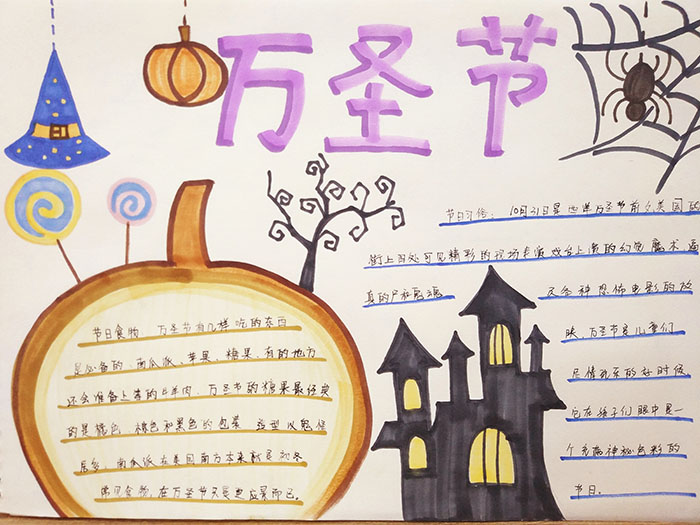 万圣节
节日习俗: 10月31日是 万圣节前夕美国的
街上四处可见精彩的现场表演 戏台上演的幻觉魔术 逼
真的尸
及各种恐怖电影的放
映、万圣节是儿童们
尽情玩乐的好时候
它在孩子们眼中是一
个充满神秘色彩的
节日。
节日食物 万圣节有几样 吃的东西
是必备的、南瓜派、苹果、糖果、有的地方
还会准备上等的牛羊肉、万圣节的糖果最经典
的是橙色 棕色和黑色的包装 造型以鬼怪
居多、南瓜派在美国南方本来就是初冬
食物、在万圣节天 应景而已。